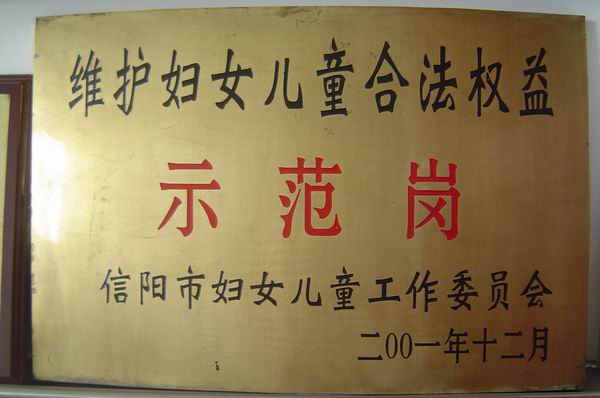 维护妇女儿童合法权益
示范岗
信阳市妇女儿童工作委员会
二00一年十二月